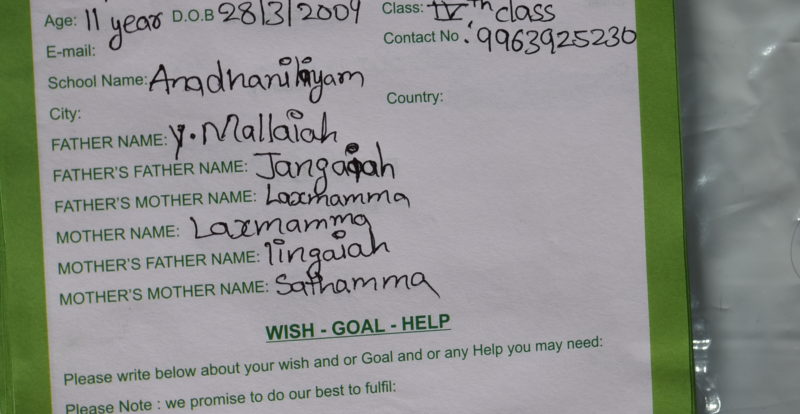 Age: 11 year D.O.B 28/3/2009 Class: IVth class
E-mail: Contact No : 9963925230
School Name: Anadhanilayam
City: Country:
FATHER NAME: Y. Mallaiah
FATHER'S FATHER NAME: Jangaiah
FATHER'S MOTHER NAME: Laxmamma
MOTHER NAME: Laxmamma
MOTHER'S FATHER NAME: lingaiah
MOTHER'S MOTHER NAME: Sathamma
WISH - GOAL - HELP
Please write below about your wish and or Goal and or any Help you may need:
Please Note : we promise to do our best to fulfil: